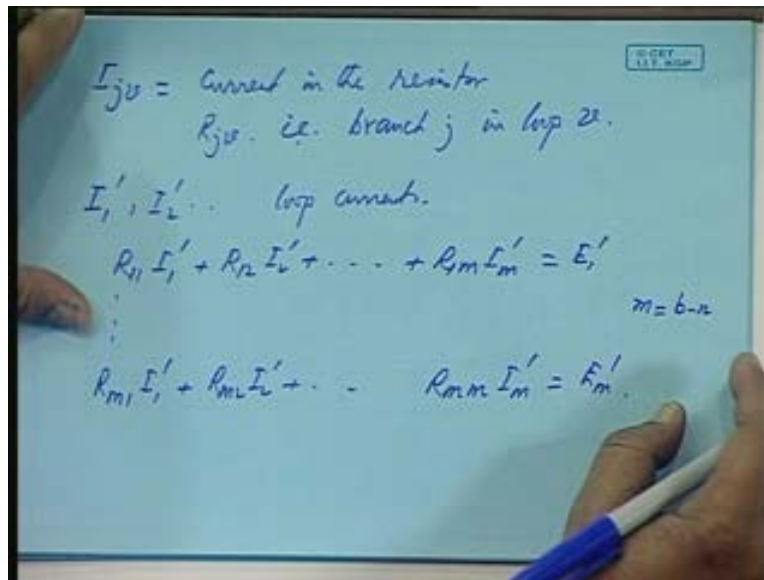 © CET
I.I.T. KGP
I_jv = Current in the resistor
R_jv. i.e. branch j in loop v.
I₁', I₂' .. loop currents.
R₁₁ I₁' + R₁₂ I₂' + . . . . + R₁m Im' = E₁'
m = b-n
⋮
Rm₁ I₁' + Rm₂ I₂' + . . - Rmm Im' = Em'.